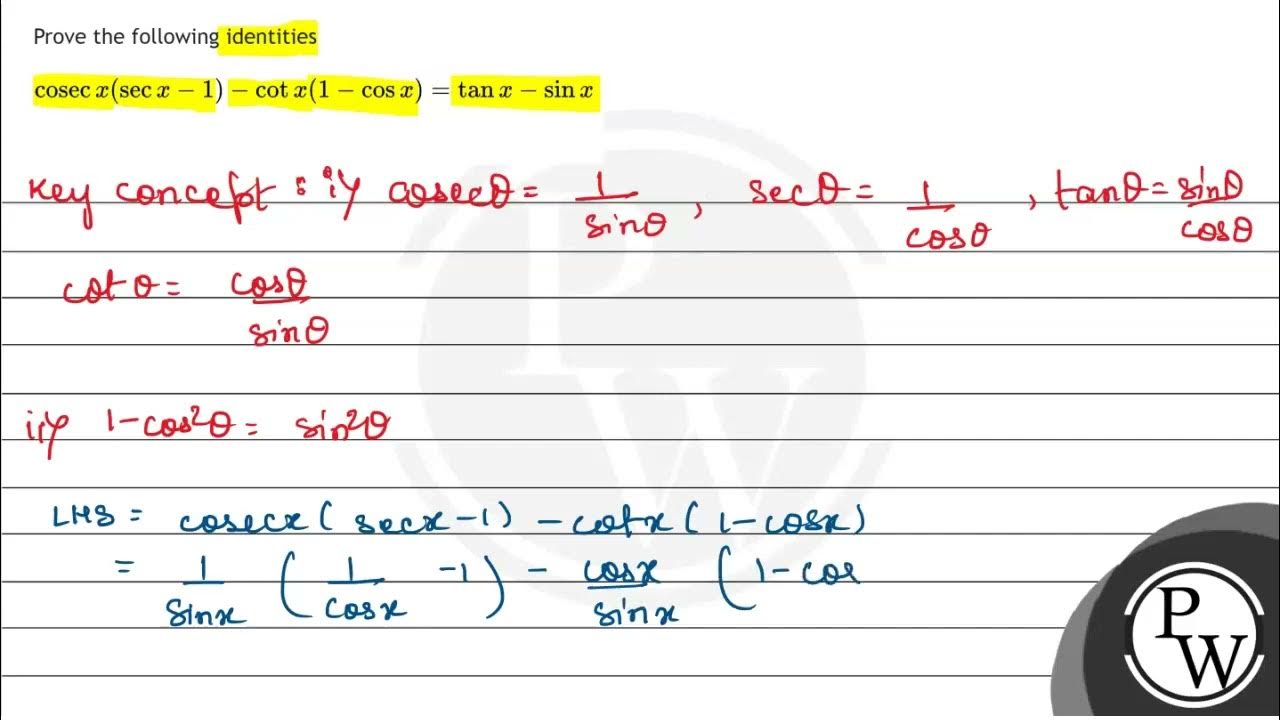 Prove the following identities
cosec x(sec x − 1) − cot x(1 − cos x) = tan x − sin x
Key concept : i) cosecθ = 1/sinθ, secθ = 1/cosθ, tanθ = sinθ/cosθ
cotθ = cosθ/sinθ
ii) 1-cos²θ = sin²θ
LHS = cosecx ( secx -1) - cotx ( 1-cosx)
= 1/sinx ( 1/cosx -1) - cosx/sinx ( 1-cos
PW
PW